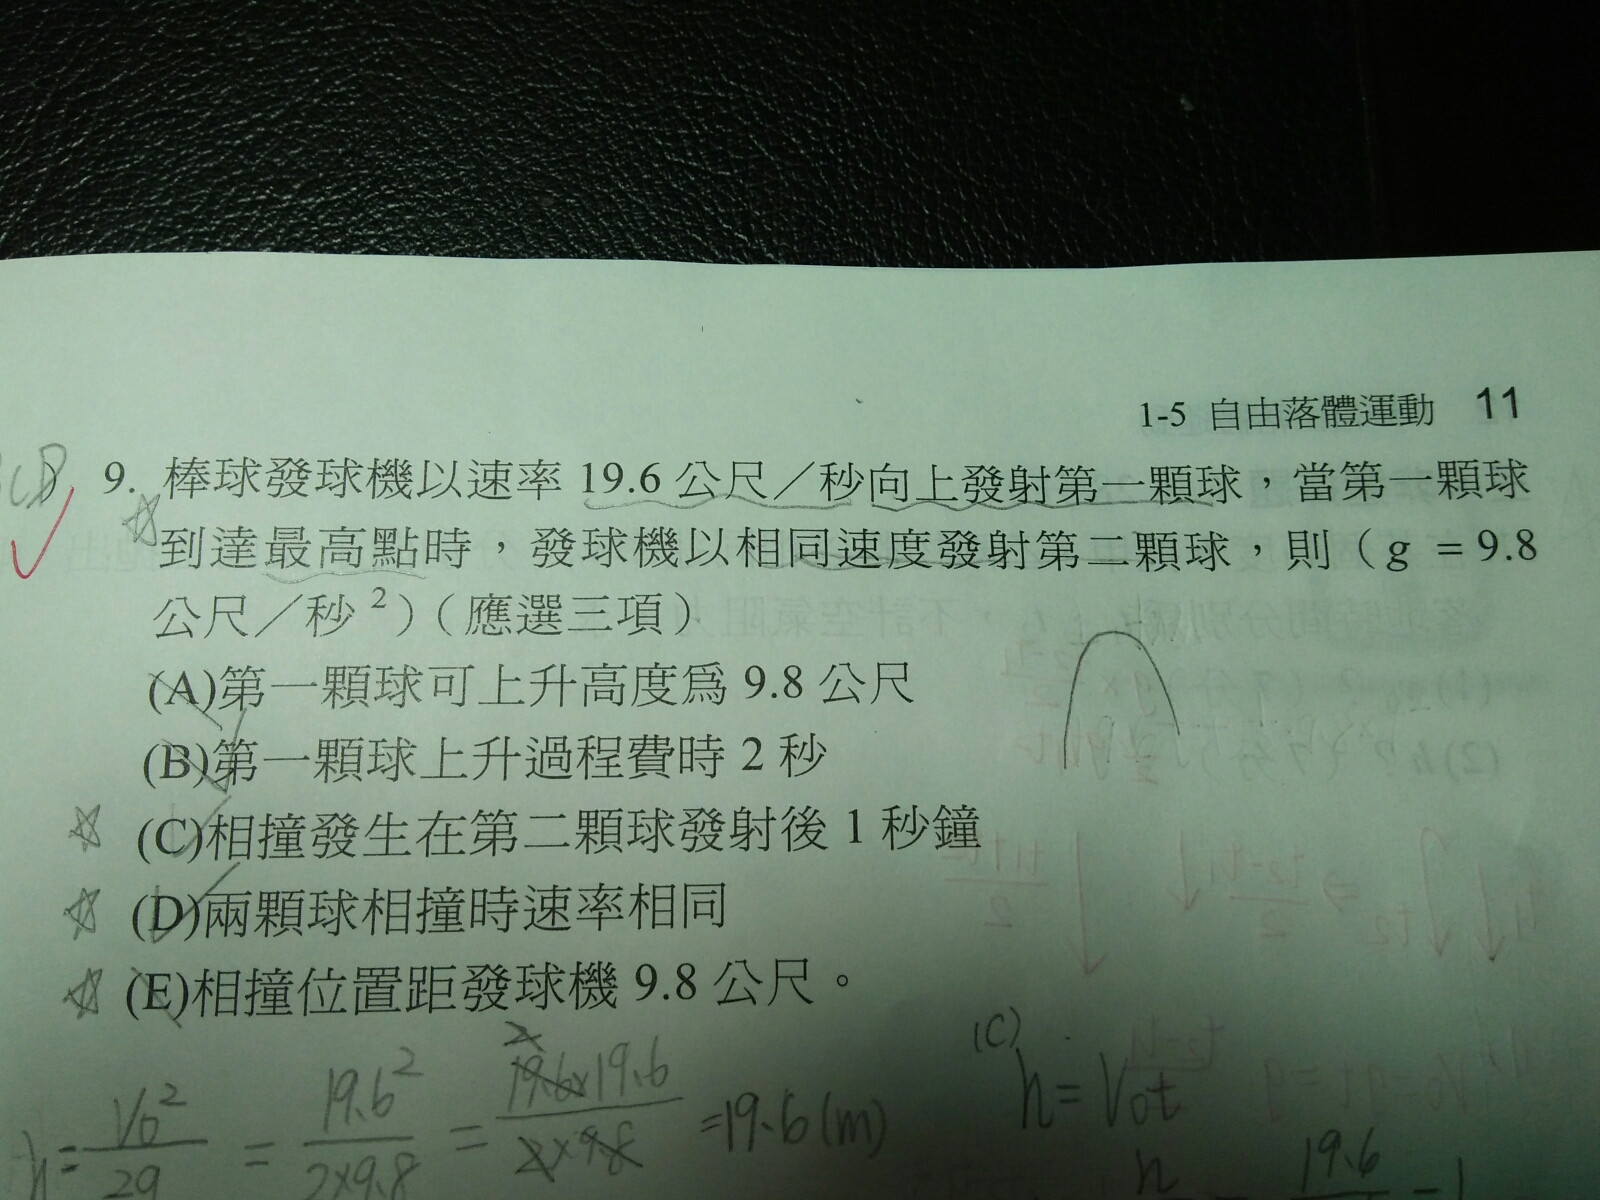 1-5 自由落體運動 11
9. 棒球發球機以速率 19.6 公尺／秒向上發射第一顆球，當第一顆球
到達最高點時，發球機以相同速度發射第二顆球，則（g = 9.8
公尺／秒²）（應選三項）
(A)第一顆球可上升高度爲 9.8 公尺
(B)第一顆球上升過程費時 2 秒
(C)相撞發生在第二顆球發射後 1 秒鐘
(D)兩顆球相撞時速率相同
(E)相撞位置距發球機 9.8 公尺。
h = V₀²/2g = 19.6²/2×9.8 = 19.6×19.6/2×9.8 = 19.6(m)
(C)
h = V₀t
19.6